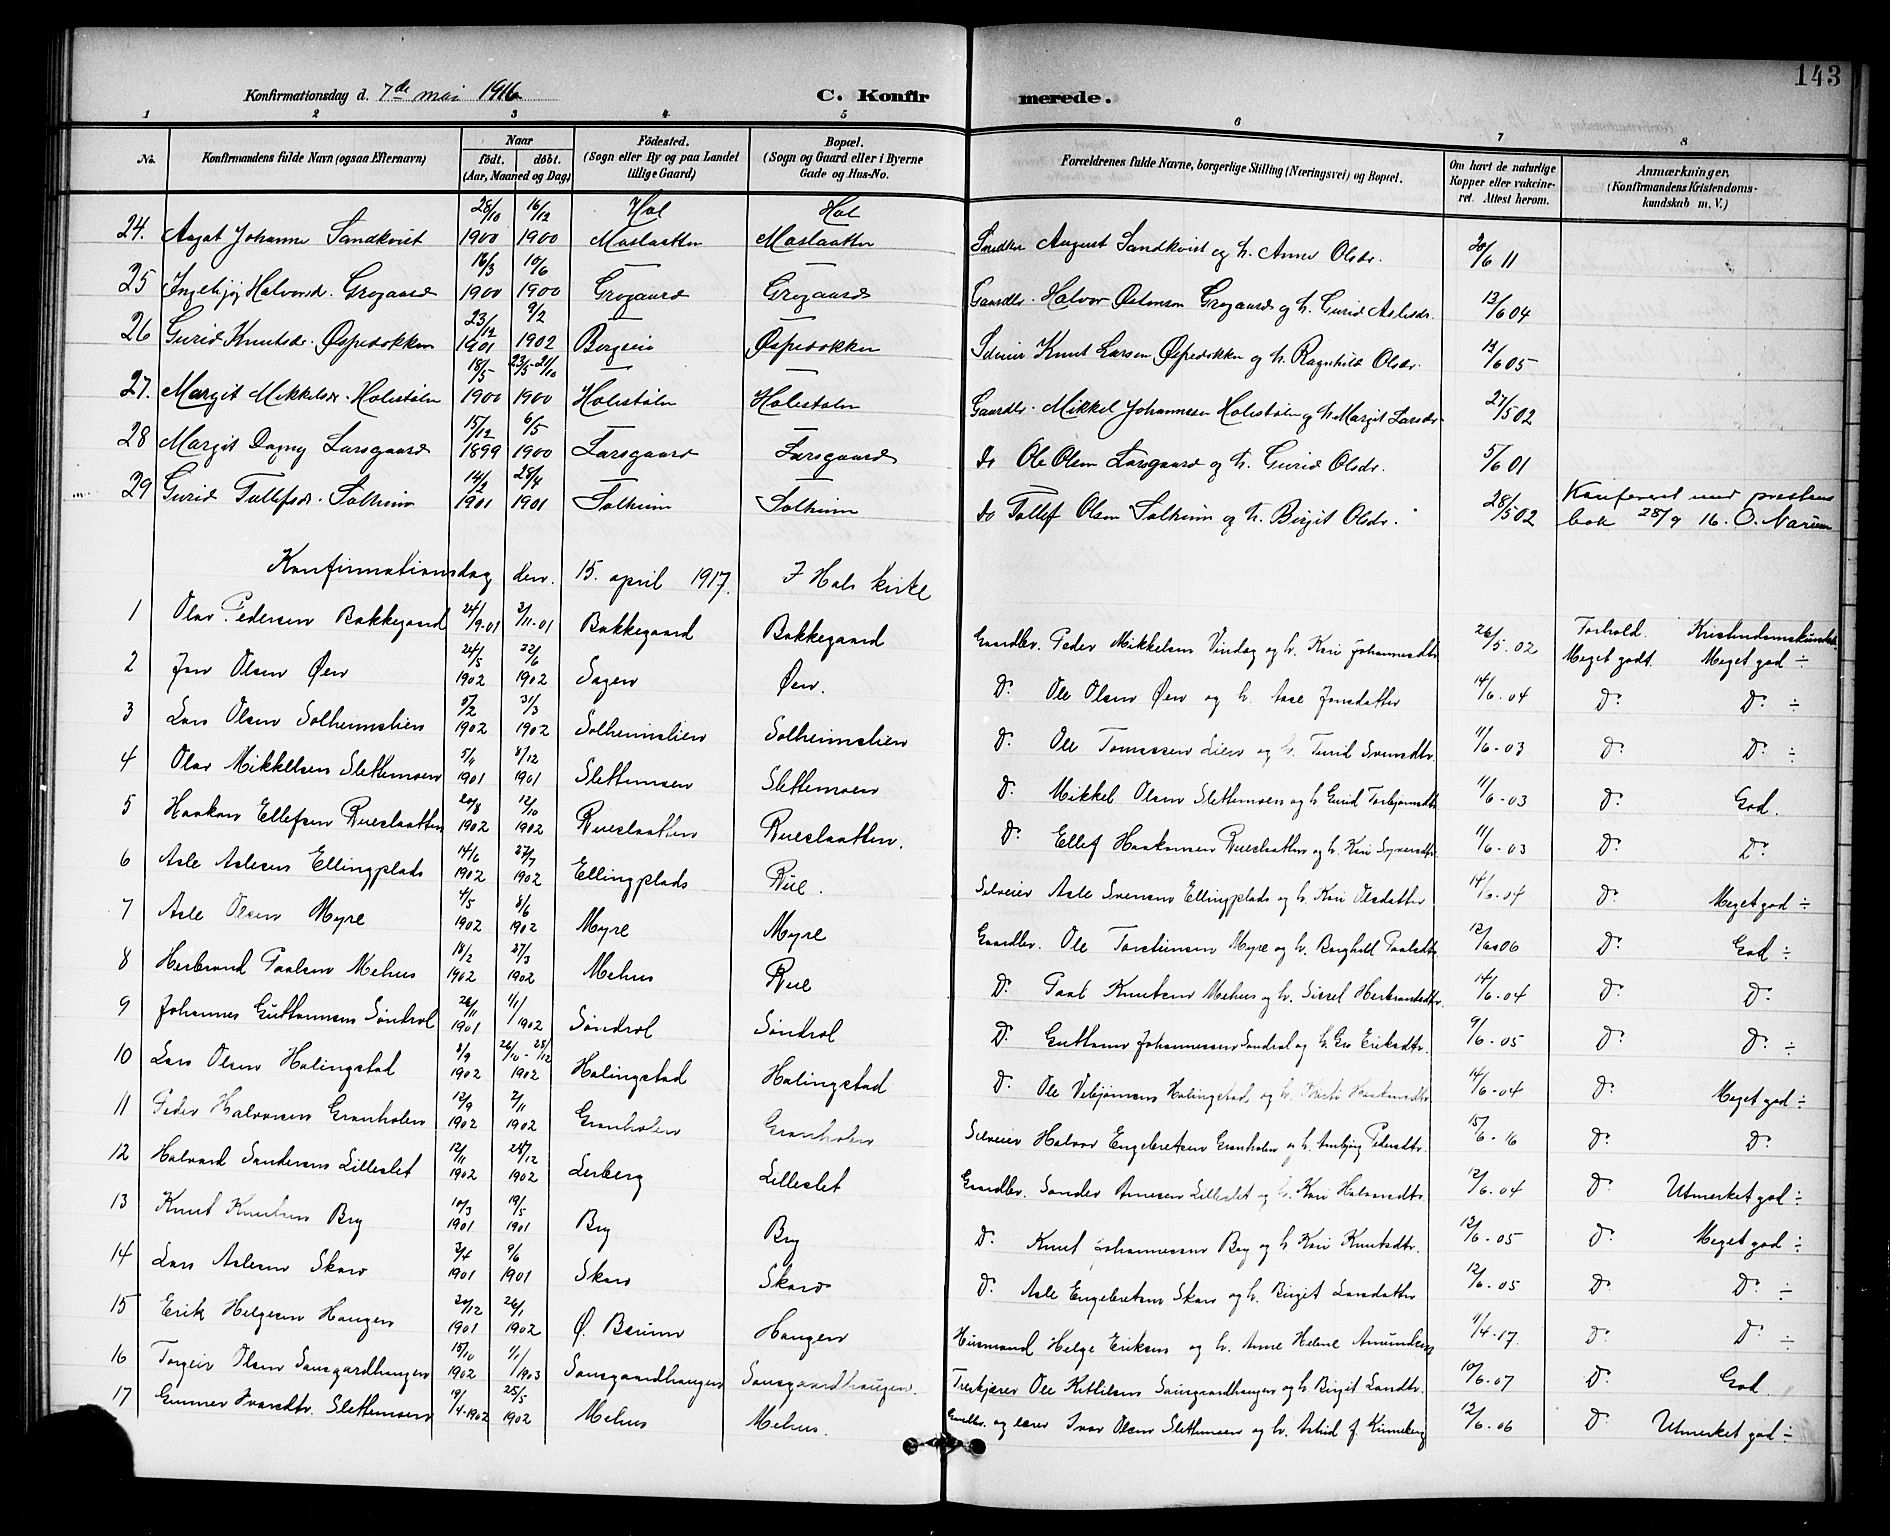 143
Konfirmationsdag d. 7de mai 1916 C. Konfir merede.
1 2 3 4 5 6 7 8
No. Konfirmandens fulde Navn (ogsaa Efternavn) Naar Födt. döbt. (Aar, Maaned og Dag) Födested. (Sogn eller By og paa Landet tillige Gaard) Bopæl. (Sogn og Gaard eller i Byerne Gade og Hus-No. Forældrenes fulde Navne, borgerlige Stilling (Næringsvei) og Bopæl. Om havt de naturlige Kopper eller vakcineret. Attest herom. Anmærkninger. (Konfirmandens Kristendomskundskab m. V.)
24. Aagot Johanne Sandkvist 28/10 1900 16/12 1900 Hol Moslaatten Hol Moslaatten August Sandkvist og h. Anne Olsdr. 20/6 11
25 Ingebjøg Halvorsd. Grøgaard 16/3 1900 10/6 1900 Grøgaard Grøgaard Gaardbr. Halvor Østensen Grøgaard og h. Gurid Aslesdr. 13/6 04
26 Gurid Knutsdr. Øspedokken 23/12 1901 9/2 1902 Bergeie Øspedokken Selveier Knut Larsen Øspedokken og h. Ragnhild Olsdr. 12/6 05
27. Margit Mikkelsdr. Holestølen 18/5 1900 23/5-21/10 1900 Holestølen Holestølen Gaardbr. Mikkel Johannesen Holestølen og h. Margit Larsdr 27/5 02
28 Margit Dagny Larsgaard 15/12 1899 6/5 1900 Larsgaard Larsgaard do Ole Olsen Larsgaard og h. Gurid Olsdr. 5/6 01
29 Gurid Tollefsdr. Solheim 14/2 1901 28/4 1901 Solheim Solheim do Tollef Olsen Solheim og h. Birgit Olsdr. 28/5 02 Konferert med prestens bok 28/9 16. O. Narum
Konfirmationsdag den. 15. april 1917. I Hols kirke
Forhold. Kristendomskundsk.
1 Olav Pedersen Bakkegaard 24/9-01 3/11-01 Bakkegaard Bakkegaard Gaardbr. Peder Mikkelsen Vindag og h. Kari Johannesdtr 26/5.02 Meget godt. Meget god ÷
2 Jon Olsen Øen 24/5 1902 22/6 1902 Sagen Øen. D. Ole Olsen Øen og h. Aase Jonsdatter 14/6.04 D. D. ÷
3 Lars Olsen Solheimslien 5/2 1902 31/3 1902 Solheimslien Solheimslien D. Ole Tomassen Lien og h. Turid Svensdtr. 11/6-03 D. D. ÷
4 Olav Mikkelsen Slettemoen 5/11 1901 8/12 1901 Slettemoen Slettemoen D. Mikkel Olsen Slettemoen og h. Gurid Torbjørnsdtr 11/6-03 D. God.
5 Haakon Ellefsen Rueslaatten 20/8 1902 12/10 1902 Rueslaatten Rueslaatten. D. Ellef Haakonsen Rueslaatten og h. Kari Syversdtr. 11/6-03 D. D.
6 Asle Aslesen Ellingplads 14/6 1902 27/7 1902 Ellingplads Rue. Selveier Asle Svensen Ellingplads og h. Kari Olsdatter 14/6.04 D. Meget god ÷
7 Asle Olsen Myre 4/5 1902 8/6 1902 Myre Myre Gaardbr. Ole Torstensen Myre og h. Borghild Paalsdtr 12/6 06 D. God ÷
8 Herbrand Paalsen Mehus 18/2 1902 27/3 1902 Mehus Rue D. Paal Knutsen Mehus og h. Sissel Herbrandsdtr. 14/6.04 D. D.
9 Johannes Guttormsen Søndrol 26/11 1901 1/1 1902 Søndrol Søndrol D. Guttorm Johannessen Søndrol og h. Gro Eriksdtr. 9/6-05 D. D. ÷
10 Lars Olsen Holingstad 8/9 1902 26/10-25/12 1902 Holingstad Holingstad D. Ole Vebjørnsen Holingstad og h. 14/6-04 D. Meget god ÷
11 Peder Halvorsen Granholen 12/9 1902 2/11 1902 Granholen Granholen Selveier Halvor Engebretsen Granholen og h. Pedersdtr 15/6-16 D. D.
12 Halvard Sandersen Lilleslet 12/11 1902 24/12 1902 Lerberg Lilleslet Gaardbr. Sander Arnesen Lilleslet og h. Kari Halvorsdtr. 12/6.04 D. Utmerket god ÷
13 Knut Knutsen Bry 10/3 1901 19/5 1901 Bry Bry D. Knut Johannessen Bry og h. Kari Knutsdtr. 12/6.05 D. Meget god ÷
14 Lars Aslesen Skaro 3/4 1901 9/6 1901 Skaro Skaro D. Asle Engebretsen Skaro og h. Birgit Larsdatter 12/6.05 D. D. ÷
15 Erik Helgesen Haugen 20/12 1901 26/1 1902 Ø. Bærum Haugen Husmand Helge Eriksen og h. Anne Helene Amundsen 11/4-17. D. D. ÷
16 Torgeir Olsen Sausgaardhaugen 15/10 1902 1/1 1903 Sausgaardhaugen Sausgaardhaugen. Ole Ketilsen Sausgaardhaugen og h. Birgit Larsdtr. 10/6.07 D. God.
17 Gunnor Ivarsdtr. Slettemoen 19/4-1902 25/5 1902 Mehus Mehus. Gaardbr. og lærer Ivar Olsen Slettemoen og h. Astrid f. Kinneberg 12/6.06 D. Utmerket god ÷